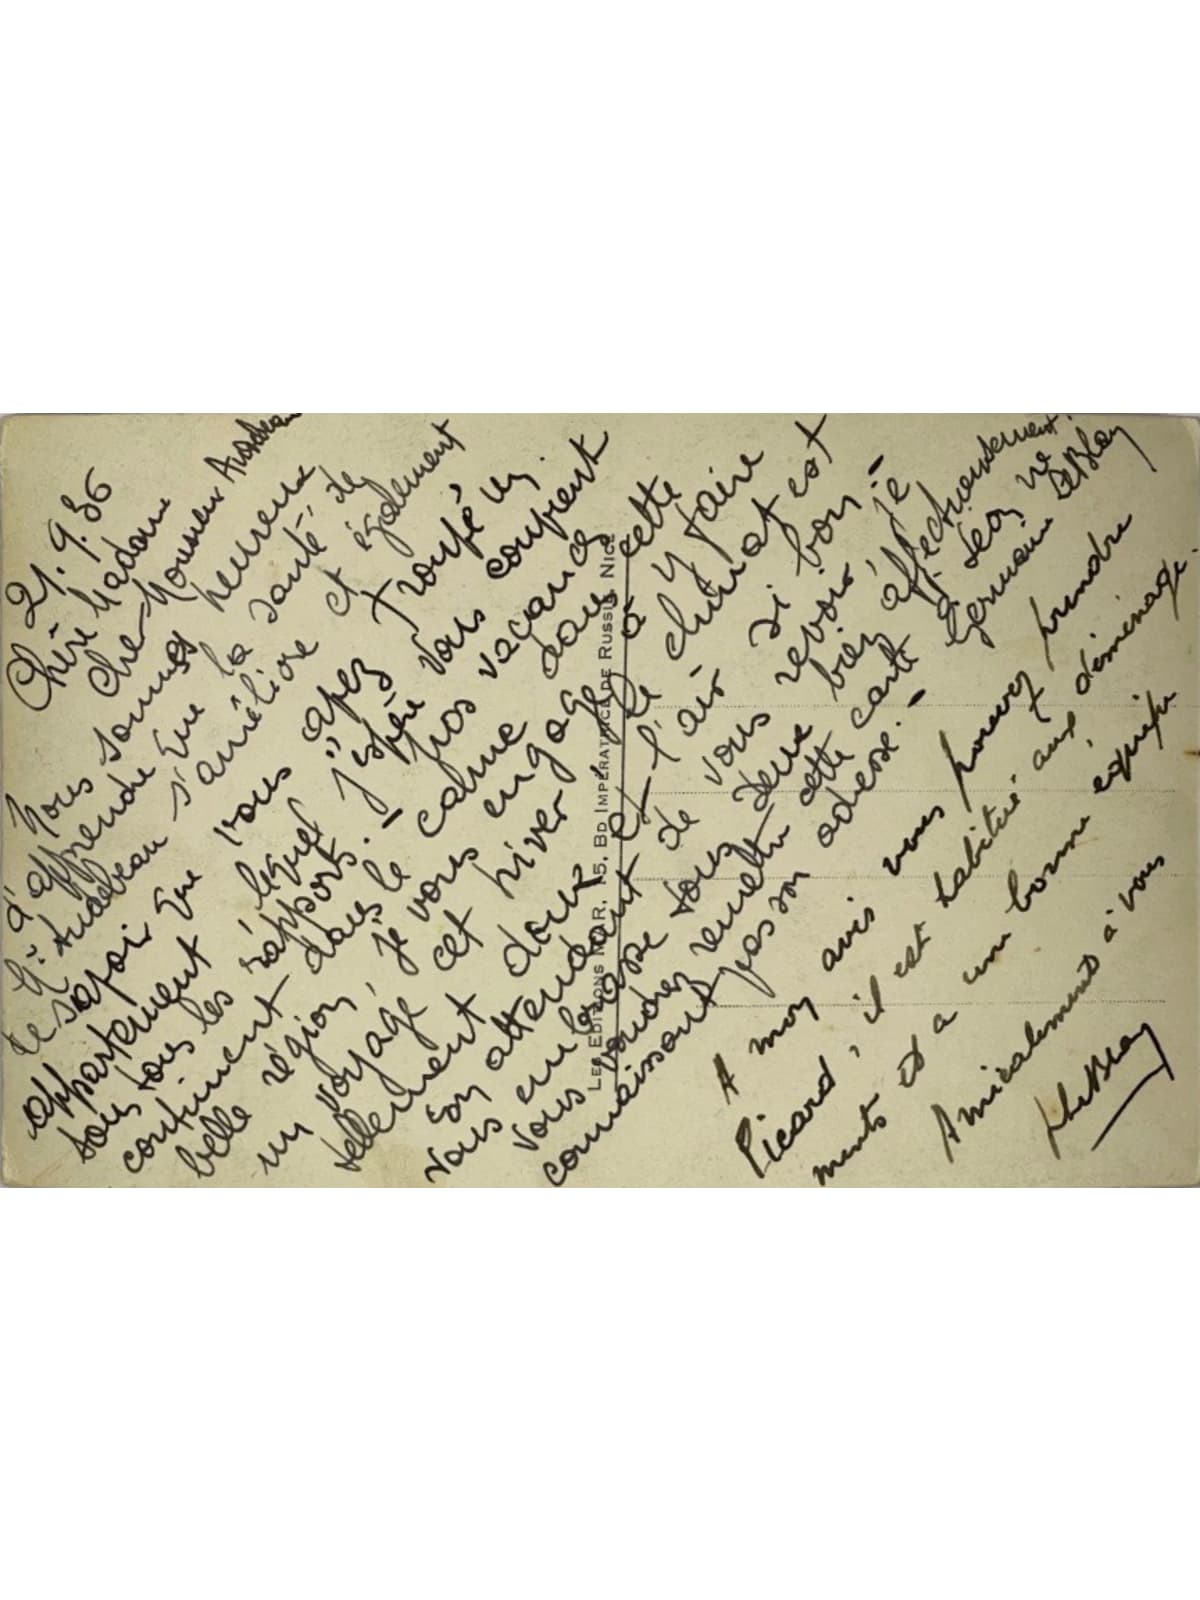 21.9.36
Chère Madame
Cher Monsieur Audebeau
Nous sommes heureux
d'apprendre que la santé de
Mr Audebeau s'améliore et également
de savoir que vous avez trouvé un
appartement lequel j'espère vous convient
sous tous les rapports. - Nos vacances
continuent dans le calme dans cette
belle région, je vous engage à y faire
un voyage cet hiver, le climat est
tellement doux et l'air si bon. -
En attendant de vous revoir, je
vous embrasse tous deux bien affectueusement.
Vous voudrez remettre cette carte à Léon ne
connaissant pas son adresse. -
Germaine LeBlay
A mon avis vous pouvez prendre
Picard, il est habitué aux déménage-
ments et a une bonne équipe
Amicalement à vous
LeBlay
Les Editions Mar, 15, Bd Impératrice de Russie, Nice